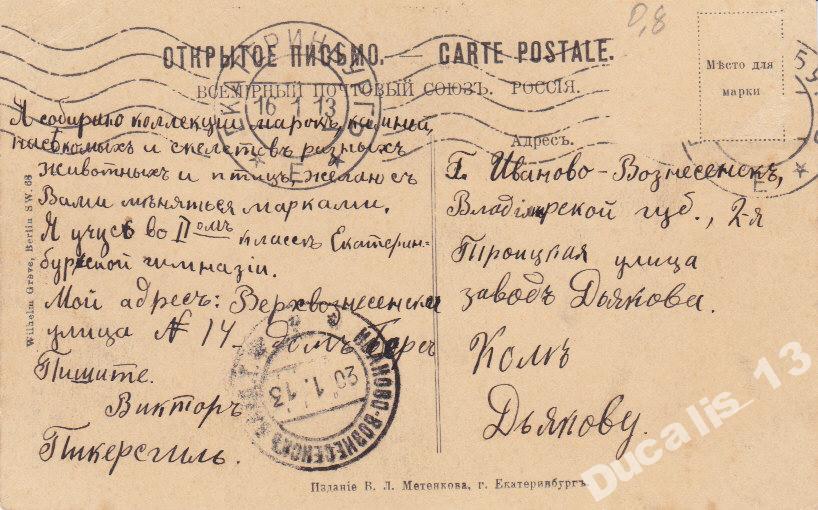 ОТКРЫТОЕ ПИСЬМО. — CARTE POSTALE.
ВСЕМІРНЫЙ ПОЧТОВЫЙ СОЮЗЪ. РОССІЯ.
0,8
Мѣсто для
марки
ЕКАТЕРИНБУРГЪ
16 1 13
Е
Я собираю коллекціи марокъ, камней,
насѣкомыхъ и скелетовъ разныхъ
животныхъ и птицъ, желаю съ
Вами мѣняться марками.
Я учусь во II омъ классѣ Екатерин-
бургской гимназіи.
Мой адресъ: Верхвознесенская
улица № 14 Домъ
Пишите.
Викторъ
Пикерсгиль.
Адресъ.
Г. Иваново-Вознесенскъ,
Владимірской губ., 2-я
Троицкая улица
заводъ Дьякова.
Колѣ
Дьякову.
ИВАНОВО-ВОЗНЕСЕНСКЪ
20.1.13
Wilhelm Greve, Berlin SW. 68
Изданіе В. Л. Метенкова, г. Екатеринбургъ.
Ducalis_13